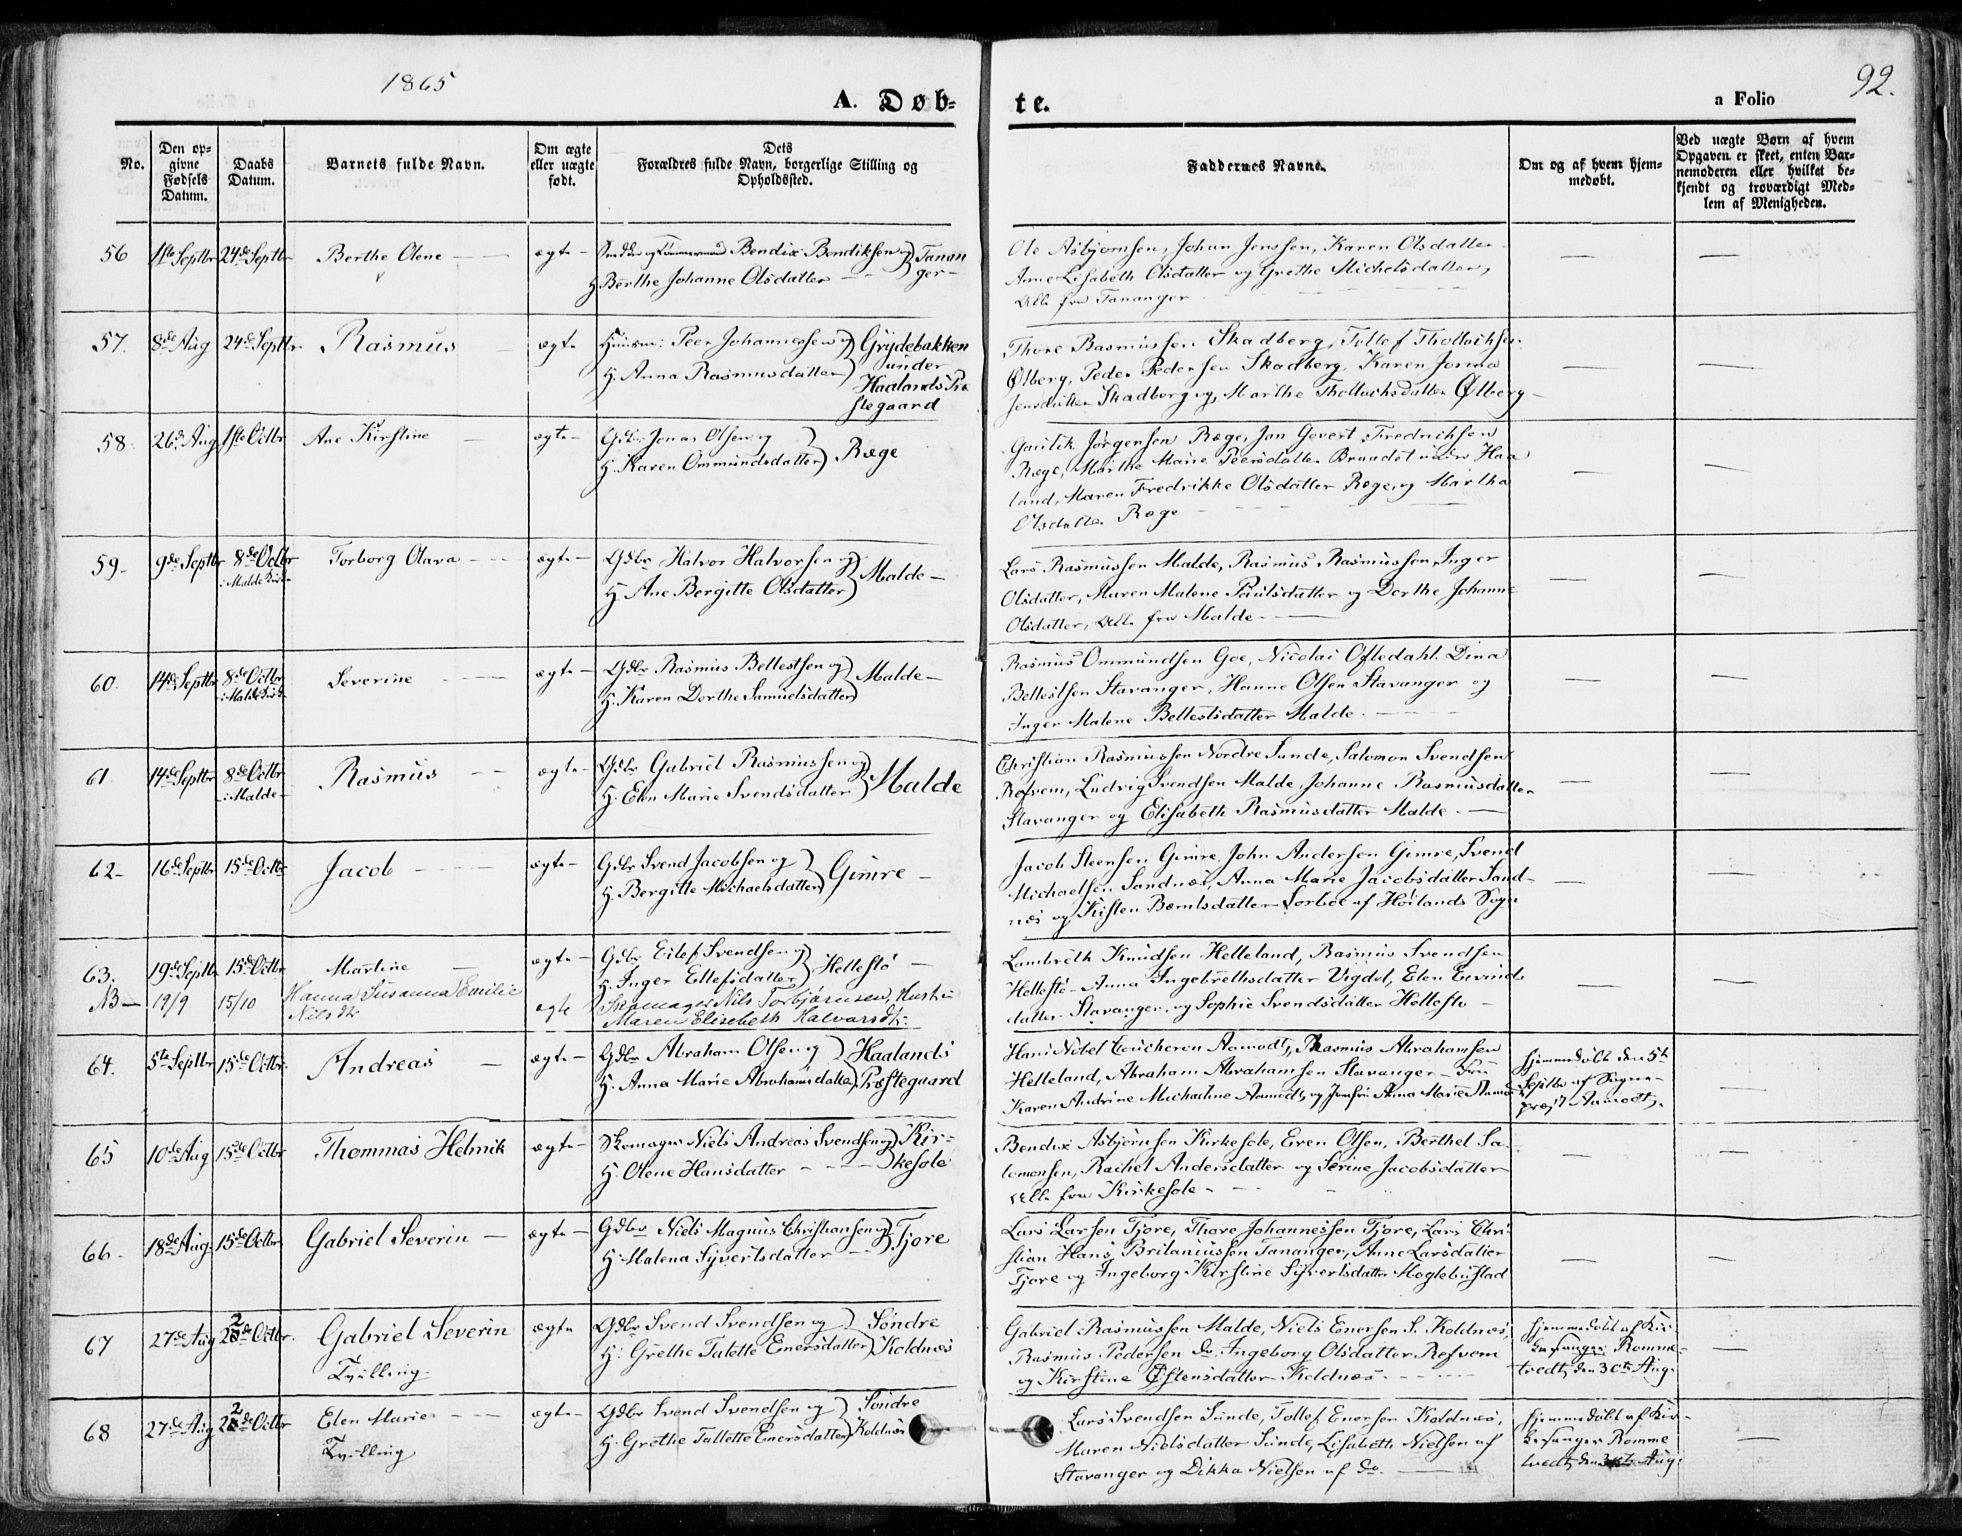 1865
92.
A. Døb-
te.
a Folio
No.
Den op-
givne
Fødsels
Datum.
Daabs
Datum.
Barnets fulde Navn.
Om ægte
eller uægte
født.
Dets
Forældres fulde Navn, borgerlige Stilling og
Opholdssted.
Faddernes Navne.
Om og af hvem hjem-
medøbt.
Ved uægte Børn af hvem
Opgaven er skeet, enten Bar-
nemoderen eller hvilket be-
kjendt og troværdigt Med-
lem af Menigheden.
56 11te Septbr 24de Septbr Berthe Olene ægte Bendix Bendiksen og
H. Berthe Johanne Olsdatter
Tanan
ger
Ole Asbjørnsen, Johan Jenssen, Karen Olsdatter
Anne Lisabeth Olsdatter og Grethe Michelsdatter,
Alle fra Tananger
57. 8de Aug 24de Septbr Rasmus ægte Huusm: Peer Johannessen og
H. Anna Rasmusdatter
Grydebakken
under
Haalands Præ
stegaard
Thore Rasmussen Skadberg, Tollef Thollochsen
Ølberg, Peder Pedersen Skadberg, Karen Jorina
Jensdatter Skadberg og Marthe Thollochsdatter Ølberg
58. 26de Aug 1ste Octbr Ane Kirstine ægte Gdbr Jonas Olsen og
H. Karen Ommundsdatter
Ræge
Gautik Jørgensen Ræge, Jan Govert Fredrichsen
Ræge, Marthe Marie Peersdatter Braadet under Haa
land, Maren Fredrikke Olsdatter Ræge, og Martha
Olsdatter Ræge
59. 9de Septbr 8de Octbr
i Malde Kirke
Torborg Olava ægte Gdbr Halvor Halvorsen og
H. Ane Bergitte Olsdatter
Malde
Lars Rasmussen Malde, Rasmus Rasmussen, Inger
Olsdatter, Maren Malene Paulsdatter og Dorthe Johanne
Olsdatter, Alle fra Malde.
60. 14de Septbr 8de Octbr
i Malde Kirke
Severine ægte Gdbr Rasmus Bellestsen og
H. Karen Dorthe Samuelsdatter
Malde
Rasmus Ommundsen Goe, Nicolai Oftedahl, Dina
Bellestsen Stavanger, Hanne Olsen Stavanger og
Inger Malene Bellestsdatter Malde.
61. 14de Septbr 8de Octbr
i Malde
Rasmus ægte Gdbr Gabriel Rasmussen og
H. Elen Marie Svendsdatter
Malde
Christian Rasmussen Nordre Sunde, Salomon Svendsen
Refvem, Ludvig Svendsen Malde, Johanne Rasmusdatter
Stavanger og Elisabeth Rasmusdatter Malde.
62 16de Septbr 15de Octbr Jacob ægte Gdbr Svend Jacobsen og
H. Bergitte Michaelsdatter
Gimre
Jacob Steensen Gimre, John Andersen Gimre, Svend
Michaelsen Sandnæs, Anna Marie Jacobsdatter Sand-
næs og Kisten Berntsdatter Sorboe af Høilands Sogn
63. 19de Septbr 15de Octbr Martine ægte Gdbr Eilef Svendsen og
H. Inger Ellefsdatter
Hellestö
NB 19/9 15/10 Hanna Susanna Emilie
Nilsdtr
egte Skomager Nils Torbjørnsen, Hustru
Maren Elisebeth Halvarsdtr.
Lambreth Knudsen Helleland, Rasmus Svendsen
Hellestö, Anna Ingebrethsdatter Vigdel, Elen Eivinds
datter Stavanger, og Sophie Svendsdatter Hellestö
64. 5te Septbr 15de Octbr Andreas ægte Gdbr Abraham Olsen og
H. Anna Marie Abrahamsdatter
Haalands
Præstegaard
Hans Nobel Aamodt, Rasmus Abrahamsen
Helleland, Abraham Abrahamsen Stavanger Fru
Karen Andrine Michaeline Aamodt, og Jomfru Anna Marie Aamodt
Hjemmedøbt den 5te
Septbr af Sogne-
præst Aamodt.
65 10de Aug 15de Octbr Thommas Helmik ægte Skomager Niels Andreas Svendsen og
H. Olene Hansdatter
Kir-
kesole
Bendix Asbjørnsen Kirkesole, Even Olsen, Berthel Sa-
lomonsen, Rachel Andersdatter og Serine Jacobsdatter
Alle fra Kirkesole
66. 18de Aug. 15de Octbr Gabriel Severin ægte Gdbr Niels Magnus Christiansen og
H. Malena Syvertsdatter
Tjore
Lars Larsen Tjore, Thore Johannessen Tjore, Lars Chri
stian Hans Britaniussen Tananger, Anne Larsdatter
Tjore og Ingeborg Kirstine Sivertsdatter Meglebustad
67 27de Aug 22de Octbr. Gabriel Severin
Tvilling
ægte Gdbr Svend Svendsen og
H. Grethe Talette Enersdatter
Søndre
Koldnæs
Gabriel Rasmussen Malde, Niels Enersen S. Koldnæs,
Rasmus Pedersen do. Ingeborg Olsdatter Refvem
og Kirstine Østensdatter Koldnæs
Hjemmedøbt af Kir-
kesanger Romme
tvedt, den 30te Aug.
68 27de Aug 22de Octbr Elen Marie
Tvilling
ægte Gdbr Svend Svendsen og
H. Grethe Tallette Enersdatter
Søndre
Koldnæs
Lars Svendsen Sunde, Tollef Enersen Koldnæs,
Maren Nielsdatter Sunde, Lisabeth Nielsen af
Stavanger og Dikka Nielsen af do.
Hjemmedøbt af Kir-
kesanger Romme
tvedt, den Aug.